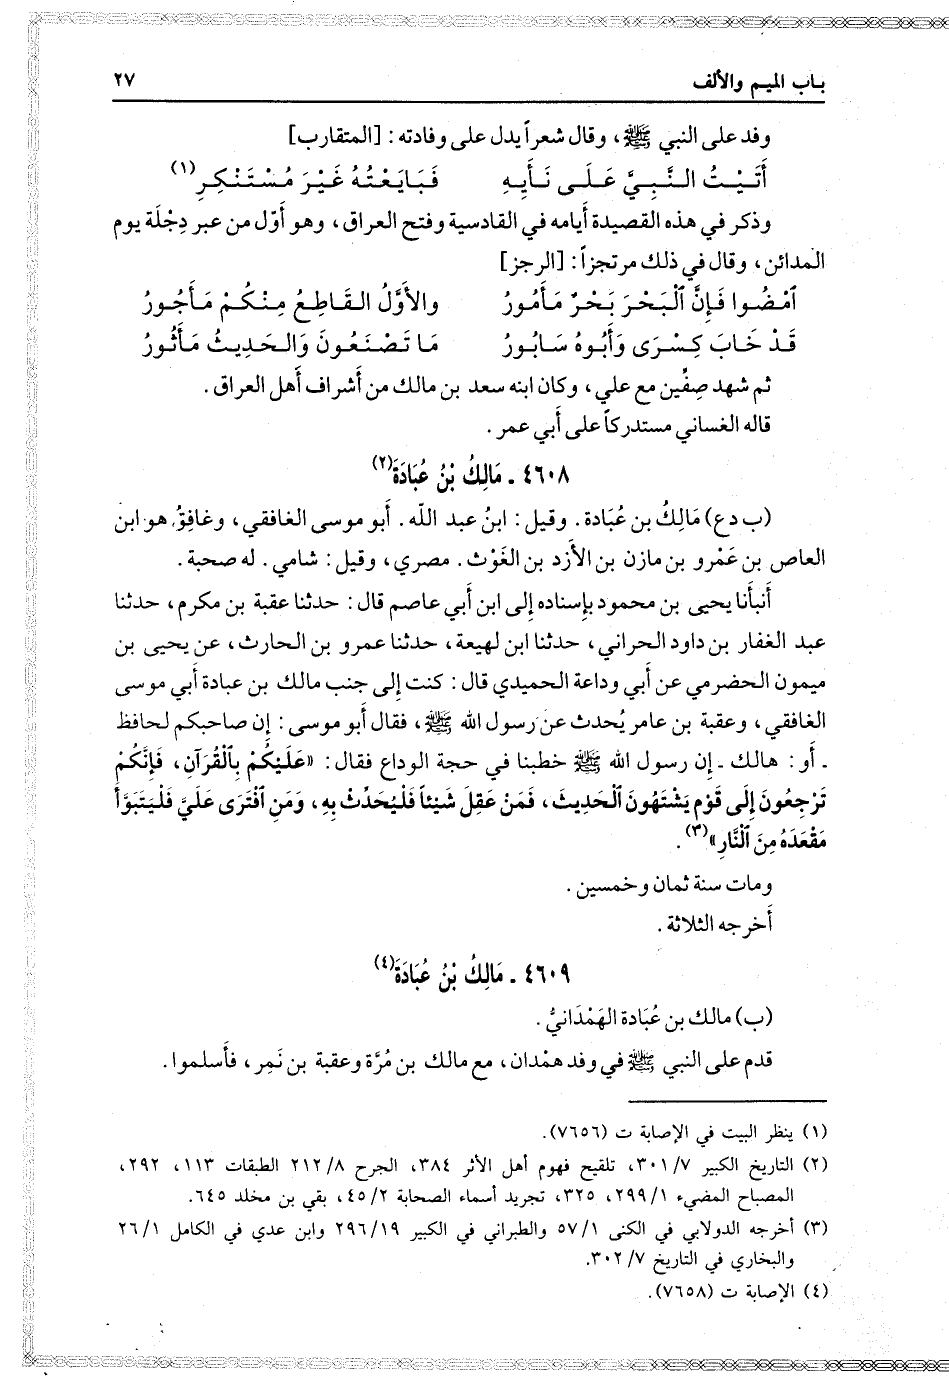 باب الميم والألف ٢٧
وفد على النبي ﷺ، وقال شعراً يدل على وفادته: [المتقارب]
أَتَيْتُ النَّبِيَّ عَلَى نَأْيِهِ فَبَايَعْتُهُ غَيْرَ مُسْتَنْكِرِ(١)
وذكر في هذه القصيدة أيامه في القادسية وفتح العراق، وهو أوّل من عبر دِجْلَة يوم
المدائن، وقال في ذلك مرتجزاً: [الرجز]
ٱمْضُوا فَإِنَّ ٱلْبَحْرَ بَحْرٌ مَأْمُورُ والأَوَّلُ القَاطِعُ مِنْكُمْ مَأْجُورُ
قَدْ خَابَ كِسْرَى وَأَبُوهُ سَابُورُ مَا تَصْنَعُونَ وَالحَدِيثُ مَأْثُورُ
ثم شهد صِفِّين مع علي، وكان ابنه سعد بن مالك من أشراف أهل العراق.
قاله الغساني مستدركاً على أبي عمر.
٤٦٠٨ ـ مَالِكُ بْنُ عُبَادَةَ(٢)
(ب دع) مَالِكُ بن عُبَادة. وقيل: ابنُ عبد اللّه. أبو موسى الغافقي، وغافِقُ هو ابن
العاص بن عَمْرو بن مازن بن الأزد بن الغَوْث. مصري، وقيل: شامي. له صحبة.
أنبأنا يحيى بن محمود بإسناده إلى ابن أبي عاصم قال: حدثنا عقبة بن مكرم، حدثنا
عبد الغفار بن داود الحراني، حدثنا ابن لهيعة، حدثنا عمرو بن الحارث، عن يحيى بن
ميمون الحضرمي عن أبي وداعة الحميدي قال: كنت إلى جنب مالك بن عبادة أبي موسى
الغافقي، وعقبة بن عامر يُحدث عن رسول الله ﷺ، فقال أبو موسى: إن صاحبكم لحافظ
ـ أو: هالك ـ إن رسول الله ﷺ خطبنا في حجة الوداع فقال: «عَلَيْكُمْ بِٱلْقُرآنِ، فَإِنَّكُمْ
تَرْجِعُونَ إِلَى قَوْمٍ يَشْتَهُونَ ٱلْحَدِيثَ، فَمَنْ عَقِلَ شَيْئاً فَلْيُحَدِّثْ بِهِ، وَمَنِ ٱفْتَرَى عَلَيَّ فَلْيَتَبَوَّأْ
مَقْعَدَهُ مِنَ ٱلْنَّارِ»(٣).
ومات سنة ثمان وخمسين.
أخرجه الثلاثة.
٤٦٠٩ ـ مَالِكُ بْنُ عُبَادَةَ(٤)
(ب) مالك بن عُبَادة الهَمْدَانيُّ.
قدم على النبي ﷺ في وفد همْدان، مع مالك بن مُرَّة وعقبة بن نَمِر، فأسلموا.
(١) ينظر البيت في الإصابة ت (٧٦٥٦).
(٢) التاريخ الكبير ٧/ ٣٠١، تلقيح فهوم أهل الأثر ٣٨٤، الجرح ٨/ ٢١٢ الطبقات ١١٣، ٢٩٢،
المصباح المضيء ١/ ٢٩٩، ٣٢٥، تجريد أسماء الصحابة ٢/ ٤٥، بقي بن مخلد ٦٤٥.
(٣) أخرجه الدولابي في الكنى ١/ ٥٧ والطبراني في الكبير ١٩/ ٢٩٦ وابن عدي في الكامل ١/ ٢٦
والبخاري في التاريخ ٧/ ٣٠٢.
(٤) الإصابة ت (٧٦٥٨).